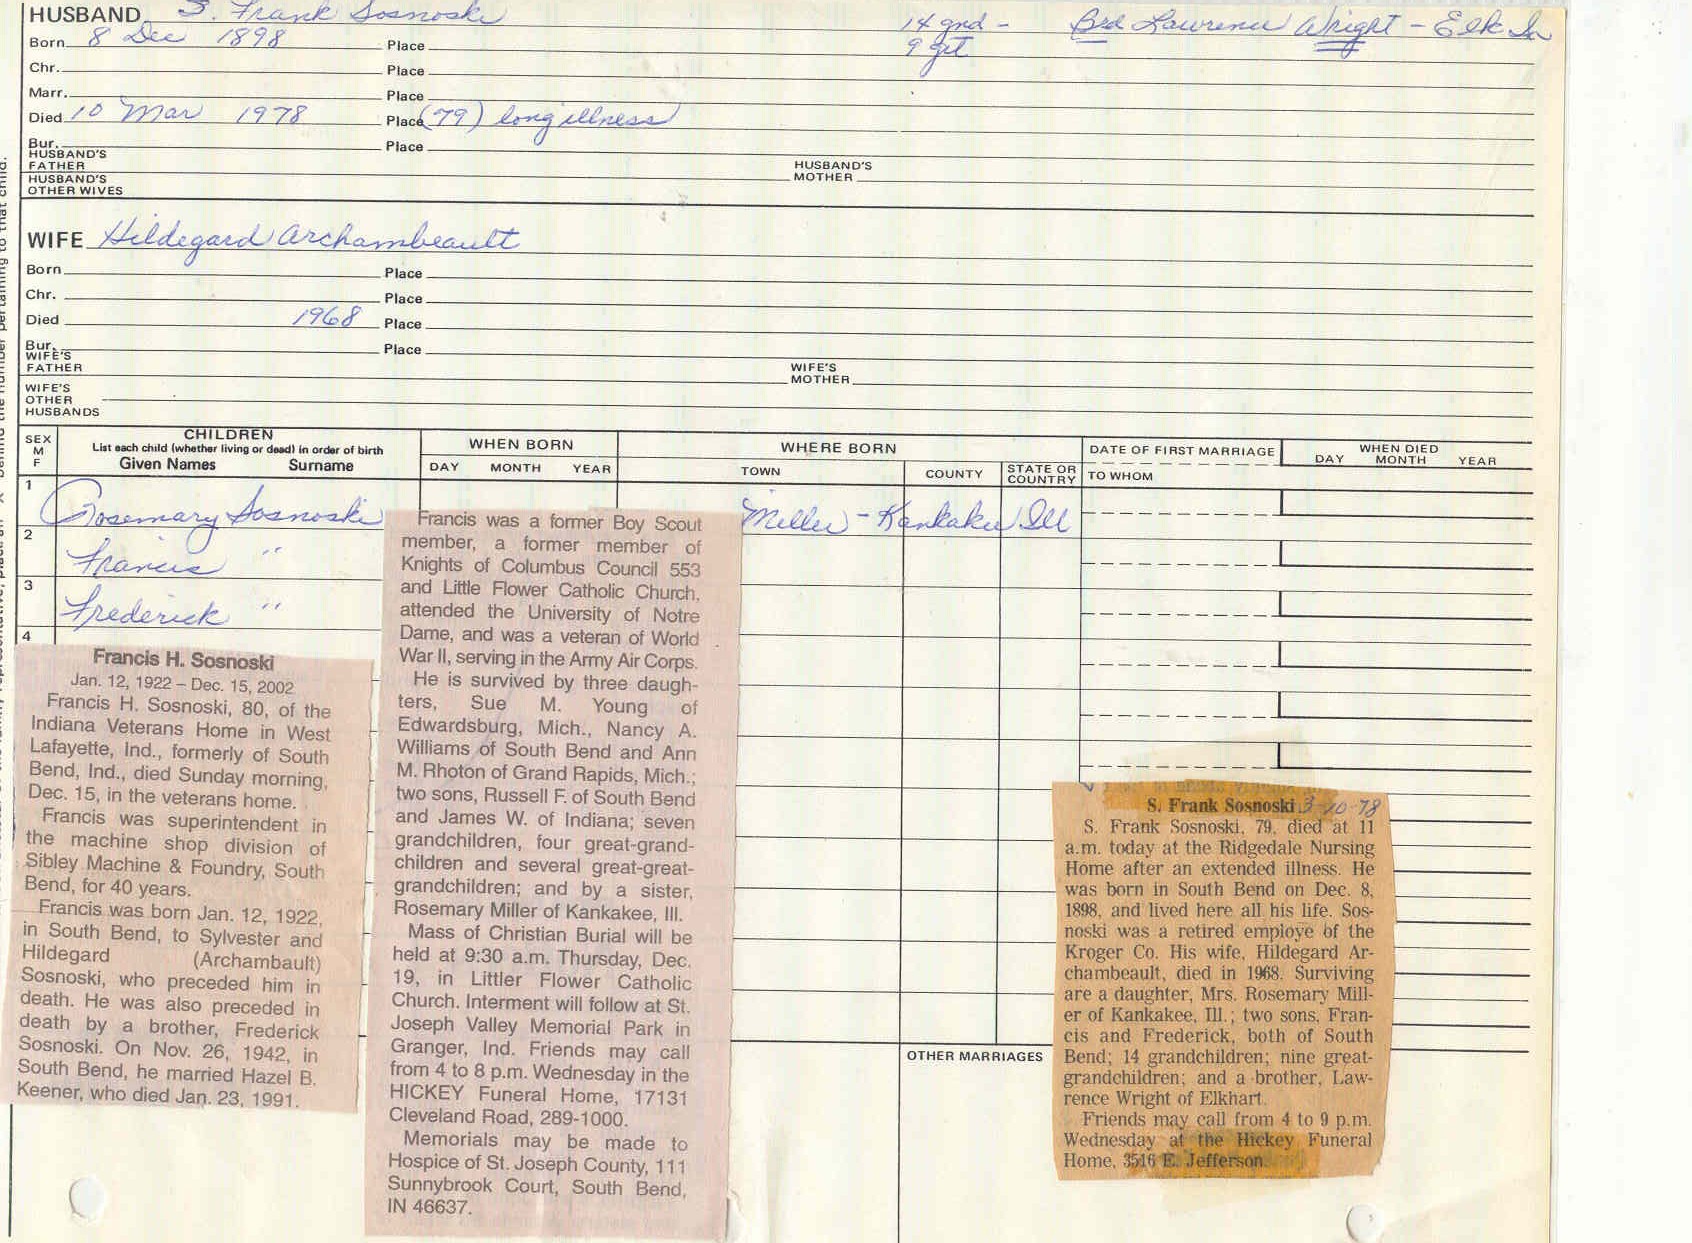 HUSBAND S. Frank Sosnoski 14 gnd - Bro Lawrence Wright - Elk In
Born 8 Dec 1898 Place 9 gt
Chr. Place
Marr. Place
Died 10 Mar 1978 Place (79) long illness
Bur. Place
HUSBAND'S FATHER HUSBAND'S MOTHER
HUSBAND'S OTHER WIVES
WIFE Hildegard Archambeault
Born Place
Chr. Place
Died 1968 Place
Bur. Place
WIFE'S FATHER WIFE'S MOTHER
WIFE'S OTHER HUSBANDS
SEX M F
CHILDREN
List each child (whether living or dead) in order of birth
Given Names Surname
WHEN BORN
DAY MONTH YEAR
WHERE BORN
TOWN COUNTY STATE OR COUNTRY
DATE OF FIRST MARRIAGE
TO WHOM
WHEN DIED
DAY MONTH YEAR
1 Rosemary Sosnoski Miller - Kankakee Ill
2 Francis "
3 Frederick "
4
Francis H. Sosnoski
Jan. 12, 1922 – Dec. 15, 2002
Francis H. Sosnoski, 80, of the
Indiana Veterans Home in West
Lafayette, Ind., formerly of South
Bend, Ind., died Sunday morning,
Dec. 15, in the veterans home.
Francis was superintendent in
the machine shop division of
Sibley Machine & Foundry, South
Bend, for 40 years.
Francis was born Jan. 12, 1922,
in South Bend, to Sylvester and
Hildegard (Archambault)
Sosnoski, who preceded him in
death. He was also preceded in
death by a brother, Frederick
Sosnoski. On Nov. 26, 1942, in
South Bend, he married Hazel B.
Keener, who died Jan. 23, 1991.
Francis was a former Boy Scout
member, a former member of
Knights of Columbus Council 553
and Little Flower Catholic Church,
attended the University of Notre
Dame, and was a veteran of World
War II, serving in the Army Air Corps.
He is survived by three daugh-
ters, Sue M. Young of
Edwardsburg, Mich., Nancy A.
Williams of South Bend and Ann
M. Rhoton of Grand Rapids, Mich.;
two sons, Russell F. of South Bend
and James W. of Indiana; seven
grandchildren, four great-grand-
children and several great-great-
grandchildren; and by a sister,
Rosemary Miller of Kankakee, Ill.
Mass of Christian Burial will be
held at 9:30 a.m. Thursday, Dec.
19, in Littler Flower Catholic
Church. Interment will follow at St.
Joseph Valley Memorial Park in
Granger, Ind. Friends may call
from 4 to 8 p.m. Wednesday in the
HICKEY Funeral Home, 17131
Cleveland Road, 289-1000.
Memorials may be made to
Hospice of St. Joseph County, 111
Sunnybrook Court, South Bend,
IN 46637.
OTHER MARRIAGES
S. Frank Sosnoski 3-10-78
S. Frank Sosnoski, 79, died at 11
a.m. today at the Ridgedale Nursing
Home after an extended illness. He
was born in South Bend on Dec. 8,
1898, and lived here all his life. Sos-
noski was a retired employe of the
Kroger Co. His wife, Hildegard Ar-
chambeault, died in 1968. Surviving
are a daughter, Mrs. Rosemary Mill-
er of Kankakee, Ill.; two sons, Fran-
cis and Frederick, both of South
Bend; 14 grandchildren; nine great-
grandchildren; and a brother, Law-
rence Wright of Elkhart.
Friends may call from 4 to 9 p.m.
Wednesday at the Hickey Funeral
Home, 3516 E. Jefferson.